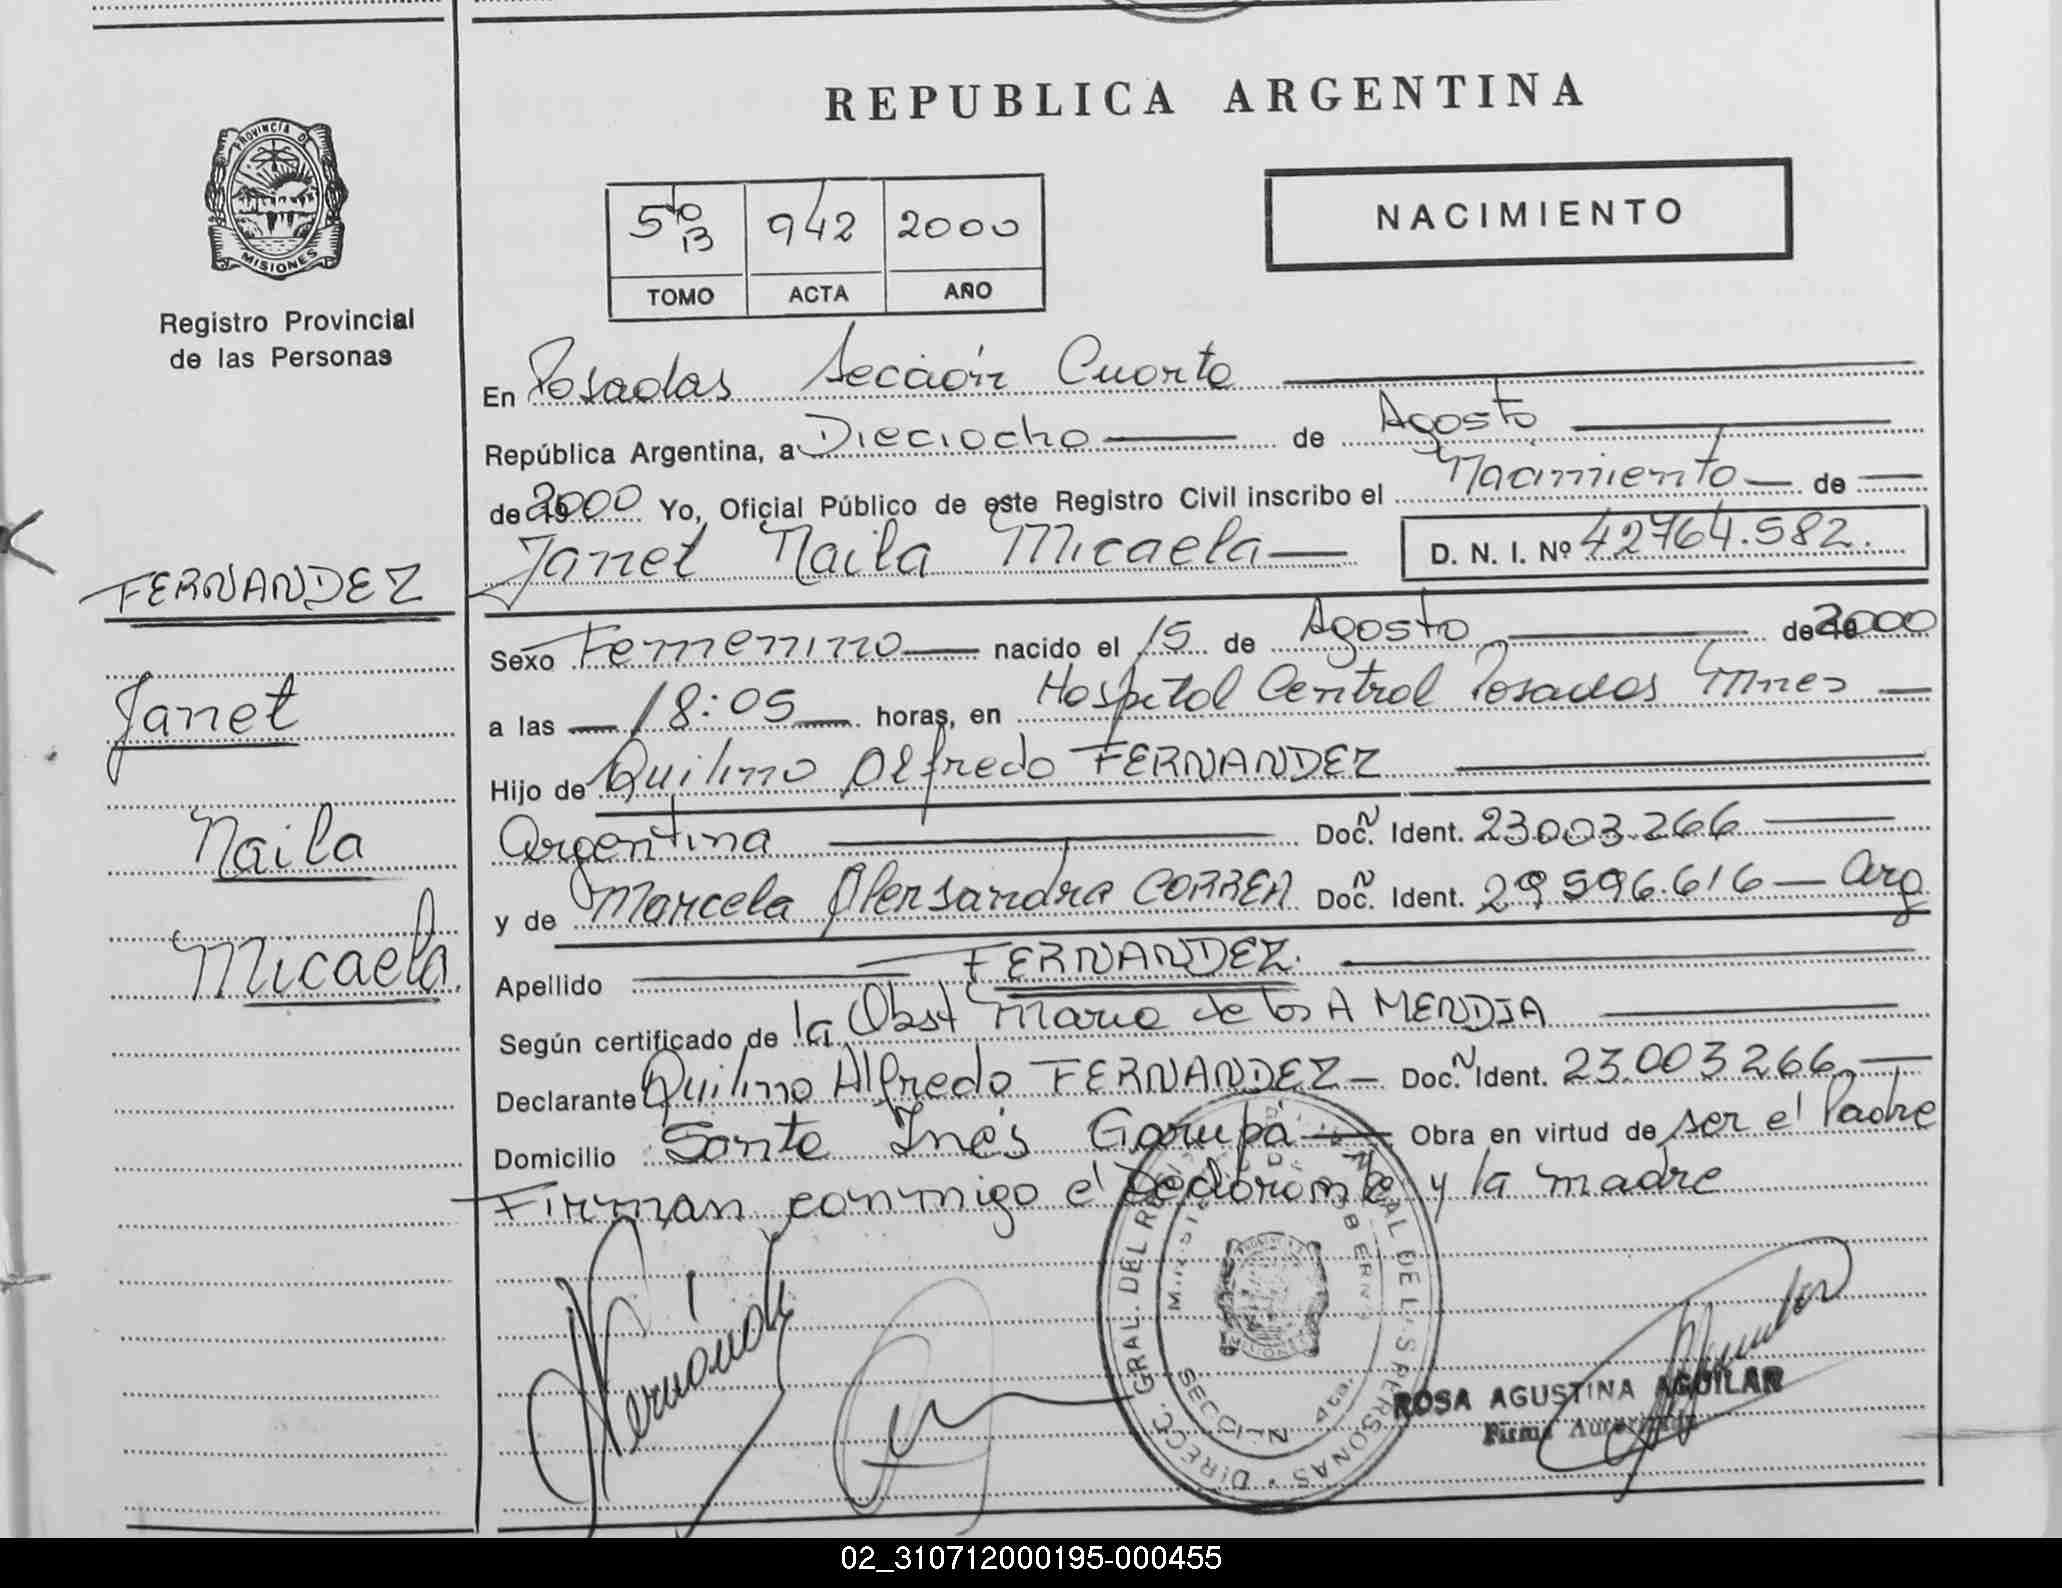 REPUBLICA ARGENTINA
PROVINCIA DE
MISIONES
Registro Provincial
de las Personas
5to 13 942 2000
TOMO ACTA AÑO
NACIMIENTO
En Posadas Sección Cuarta
República Argentina, a Dieciocho de Agosto
de 2000 Yo, Oficial Público de este Registro Civil inscribo el Nacimiento de
Janet Naila Micaela D. N. I. Nº 42764.582.
FERNANDEZ
Janet
Naila
Micaela.
Sexo Femenino nacido el 15 de Agosto de 2000
a las 18:05 horas, en Hospital Central Posadas Mnes
Hijo de Quilino Alfredo FERNANDEZ
Argentina Doc. Ident. 23003.266
y de Marcela Alensandra CORREA Doc. Ident. 29596.616 Arg
Apellido FERNANDEZ.
Según certificado de la Obst Maria de los A MENDIA
Declarante Quilino Alfredo FERNANDEZ Doc. Ident. 23.003266
Domicilio Santa Inés Garupá Obra en virtud de ser el Padre
Firman conmigo el Declarante y la madre
SECCION 4ta.
ROSA AGUSTINA AGUILAR
Firma Autorizada
02_310712000195-000455